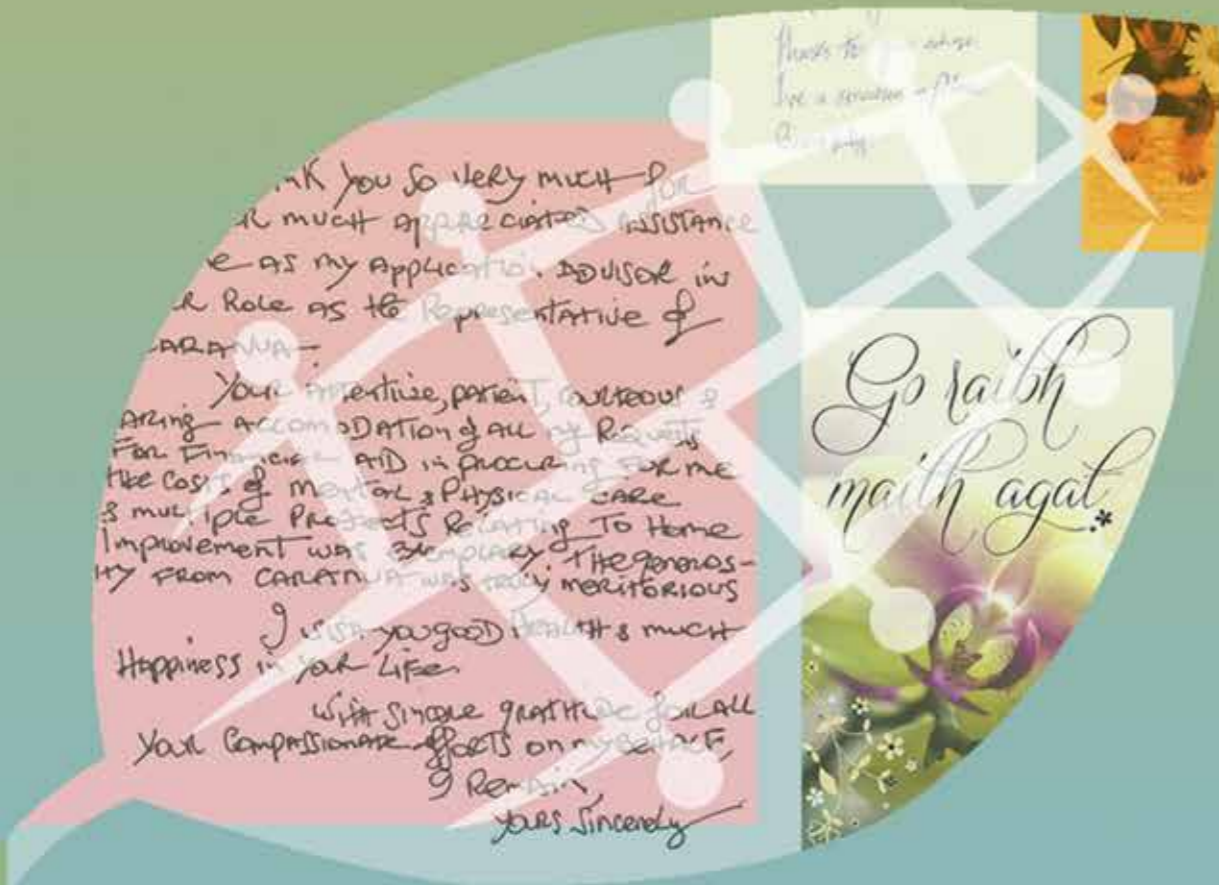 thanks to
I've a
nk you so very much for
r much appreciated assistance
e as my application advisor in
r role as the Representative of
aranua-
Your attentive, patient, courteous &
aring accomodation of all my Requests
For Financial Aid in procuring for me
the costs of mental & physical care
& multiple Projects Relating to Home
Improvement was exemplary. The generos-
ity from Caranua was truly meritorious
I wish you good Health & much
Happiness in your Life.
With sincere gratitude for all
Your compassionate efforts on my behalf,
I Remain,
yours sincerely
Go raibh
maith agat